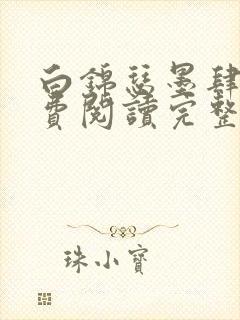 白錦瑟墨肆
費閱讀完整
珠小寶